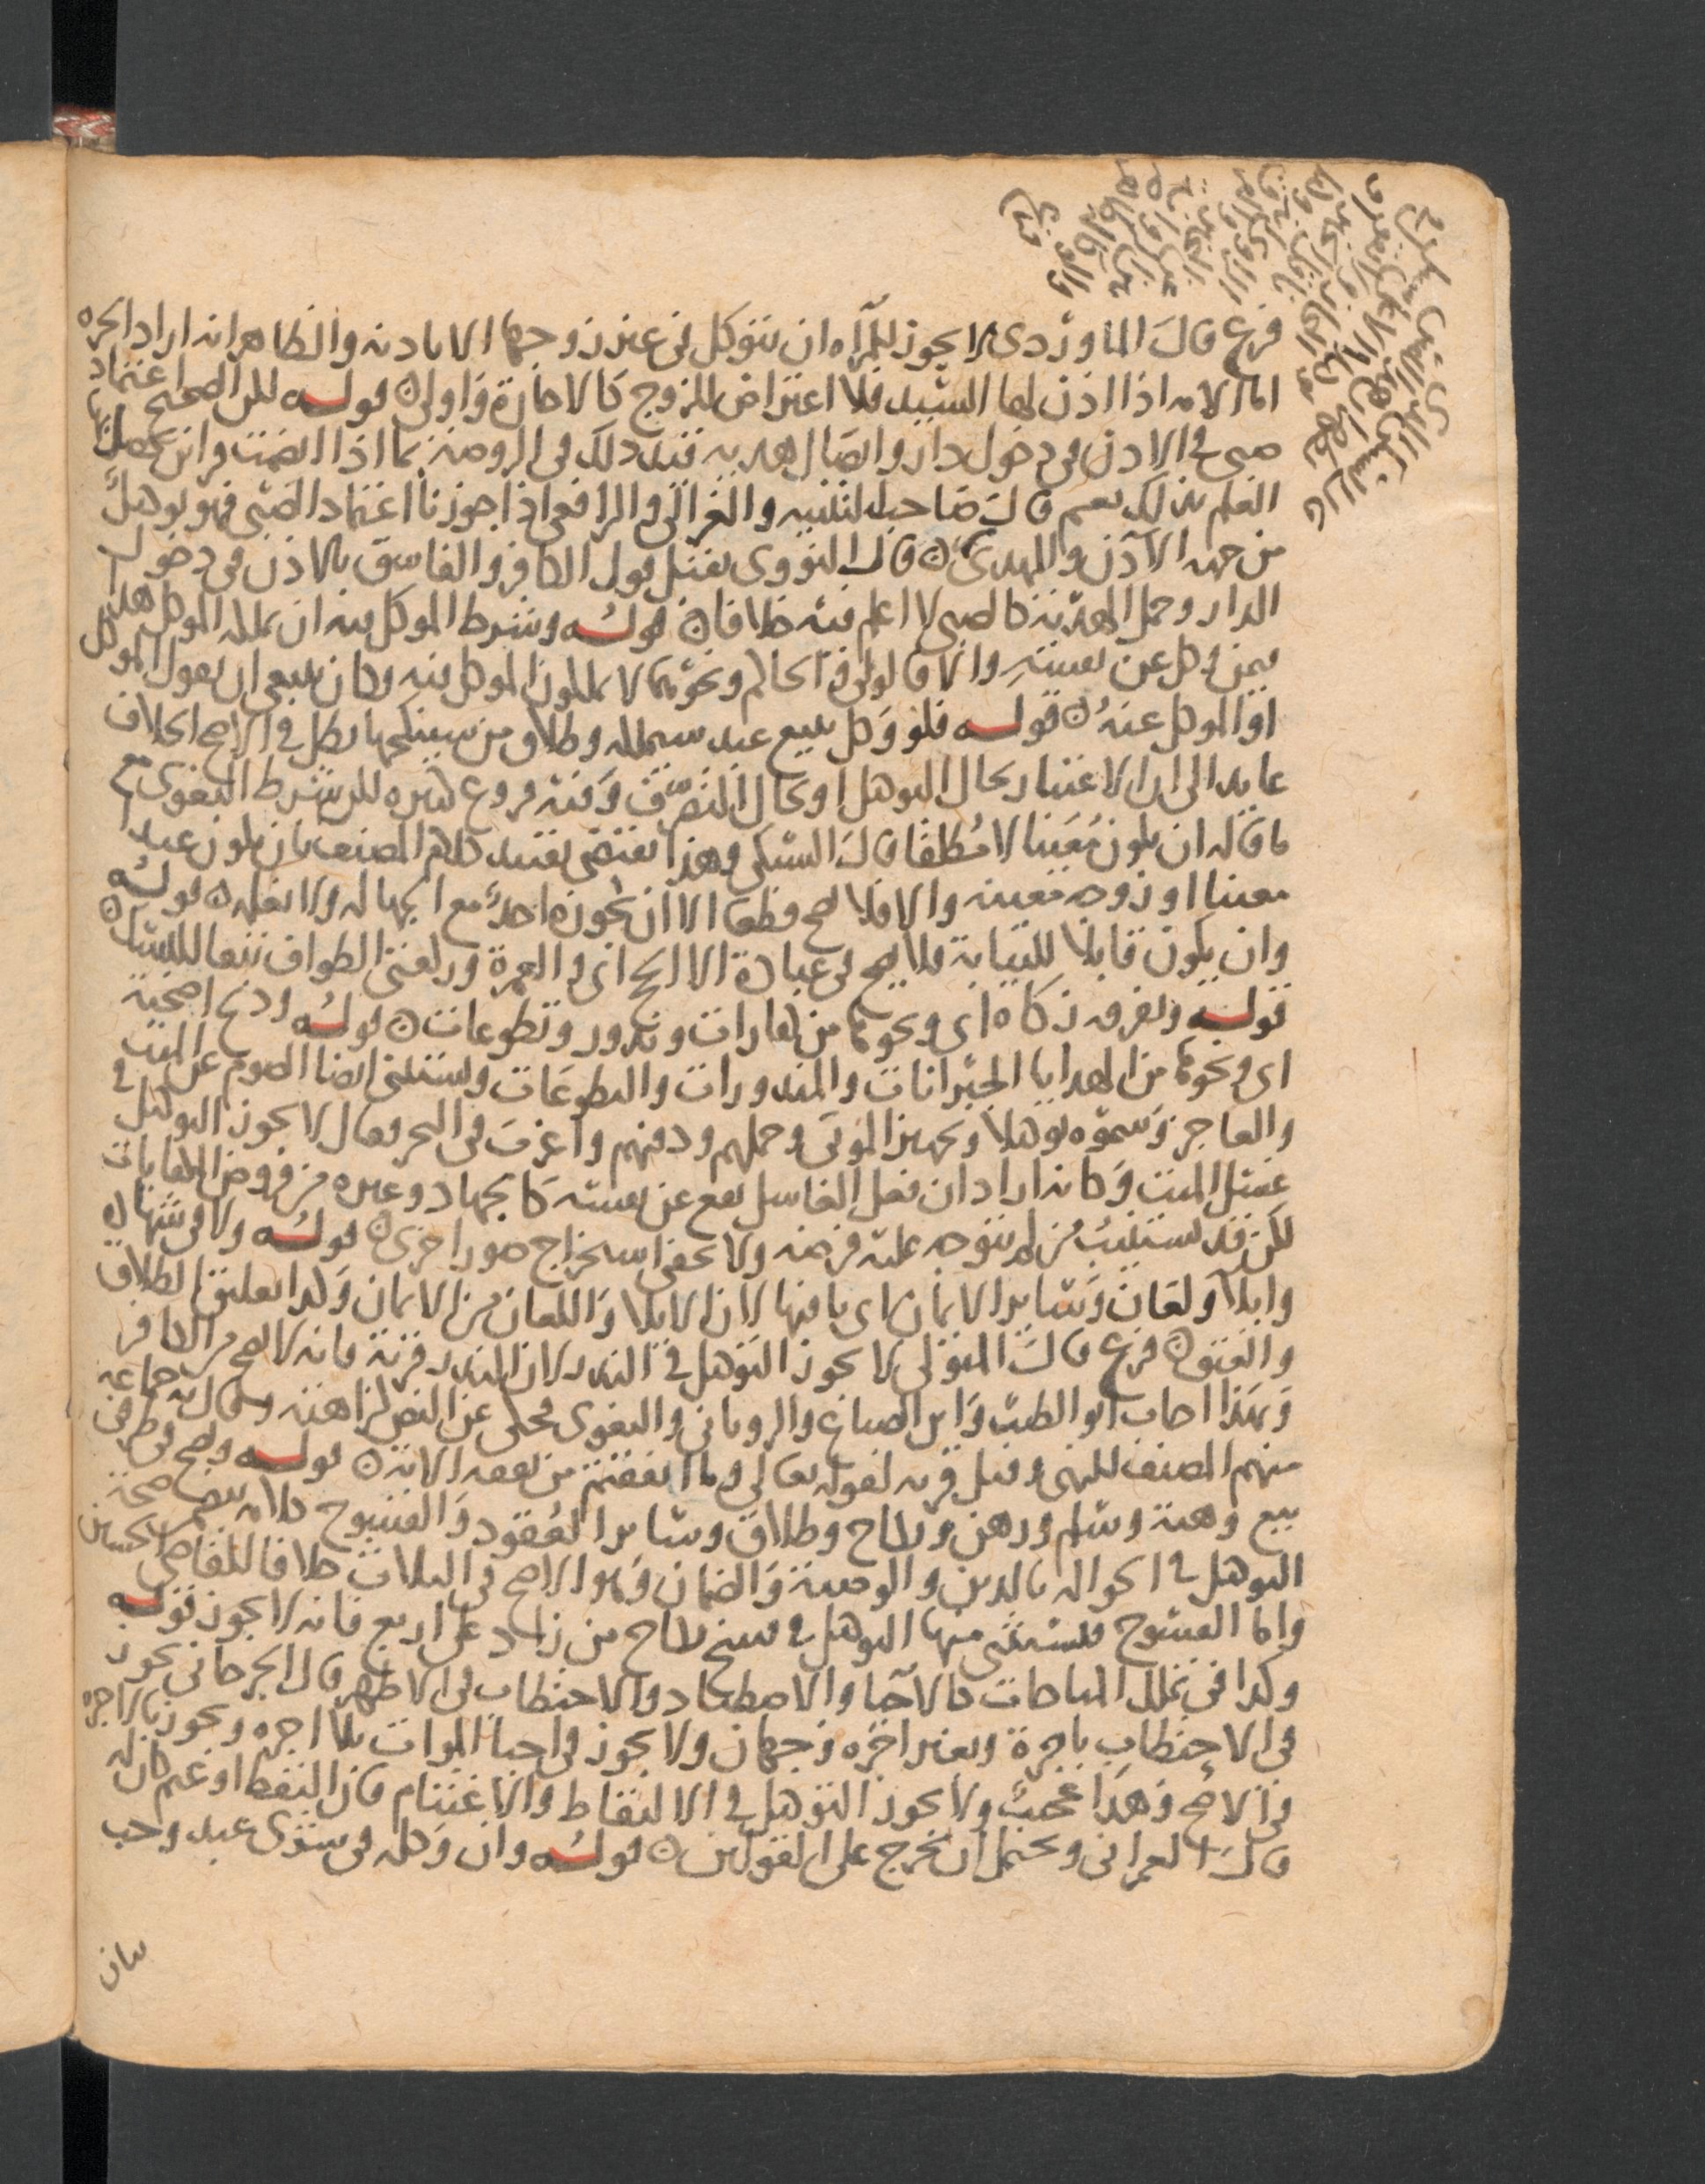 فرع قال الماوردي لا يجوز للمرأه ان تتوكل في عير زوجها الا باذنه والظاهر انه اراد الحره
اما الامه اذا اذن لها السيد فلا اعتراض للزوج كالاجارة واولى قوله لكن الصحيح اعتماد
صبي في الاذن في دخول دار وايصال هديه قيد ذلك في الروضة بما اذا انضمت قراين تحصل بها
العلم بذلك نعم قال صاحب التنبيه والغزالي والرافعي اذا جوزنا اعتماد الصبي فهو توكيل
من جهه الآذن والمهدي قال النووي يقبل قول الكافر والفاسق بالاذن في دخول
الدار وحمل الهدية كالصبي لا اعلم فيه خلافا قوله وشرط الموكل فيه ان يملكه الموكل هذا
فيمن وكل عن نفسه والا فالولي والحاكم ونحوهما لا يملكون الموكل فيه وكان ينبغي ان يقول الموكل
او الموكل عنه قوله فلو وكل ببيع عبد سيملكه وطلاق من سينكحها بطل في الاصح الخلاف
عايد الى ان الاعتبار بحال التوكيل او بحال التصرف وفيه فروع كثيره لكن شرط البغوي مع
ما قاله ان يكون معينا لا مطلقا قال السبكي وهذا يقتضي تقييد كلام المصنف بان يكون عبدا
معينا او زوجه معينه والا فلا يصح قطعا الا ان يجوزه احد مع الجهاله ولا نعلمه قوله
وان يكون قابلا للنيابة فلا يصح في عبادة الا الحج اي والعمرة وركعتي الطواف تبعا للنسك
قوله وتفرقه زكاه اي ونحوها من كفارات ونذور وتطوعات قوله وذبح اضحية
اي ونحوها من الهدايا الجبرانات والمنذورات والتطوعات ويستثنى ايضا الصوم عن الميت
والعاجز وسموه توكيلا وتجهيز الموتى وحملهم ودفنهم واغرب في البحر فقال لا يجوز التوكيل في
غسل الميت وكانه اراد ان فعل الغاسل يقع عن نفسه كالجهاد وغيره من فروض الكفايات
لكن قد يستنيب من لم يتوجه عليه فرضه ولا يخفى استخراج صور اخرى قوله ولا في شهادة
وايلا ولعان وسائر الايمان اي باقيها لان الايلا واللعان من الايمان وكذا تعليق الطلاق
والعتق فرع قال المتولي لا يجوز التوكيل في النذر لان النذر قربة فانه لا يصح من الكافر
وبهذا اجاب ابو الطيب وابن الصباغ والروياني والبغوي محكي عن النص كراهته وقال به جماعه
منهم المصنف للنهي وقيل قربه لقوله تعالى وما انفقتم من نفقه الآية قوله ويصح في طرفي
بيع وهبة وسلم ورهن ونكاح وطلاق وسائر العقود والفسوخ كلامه يقتضي صحة
التوكيل في الحواله بالدين والوصية والضمان وهو الاصح في الثلاث خلافا للقاضي الحسين
واما الفسوخ فيستثنى منها التوكيل في فسخ نكاح من زاد على اربع فانه لا يجوز قوله
وكذا في تملك المباحات كالاحيا والاصطياد والاحتطاب في الاظهر قال الجرجاني يجوز
في الاحتطاب باجرة وبغير اجره وجهان ولا يجوز في احيا الموات بلا اجره ويجوز بالاجره
في الاصح وهذا عجيب ولا يجوز التوكيل في الالتقاط والاغتنام فان التقط او غنم كان له
قال العمراني ويحتمل ان يخرج على القولين قوله وان وكله في شرى عبد وجب
بيان